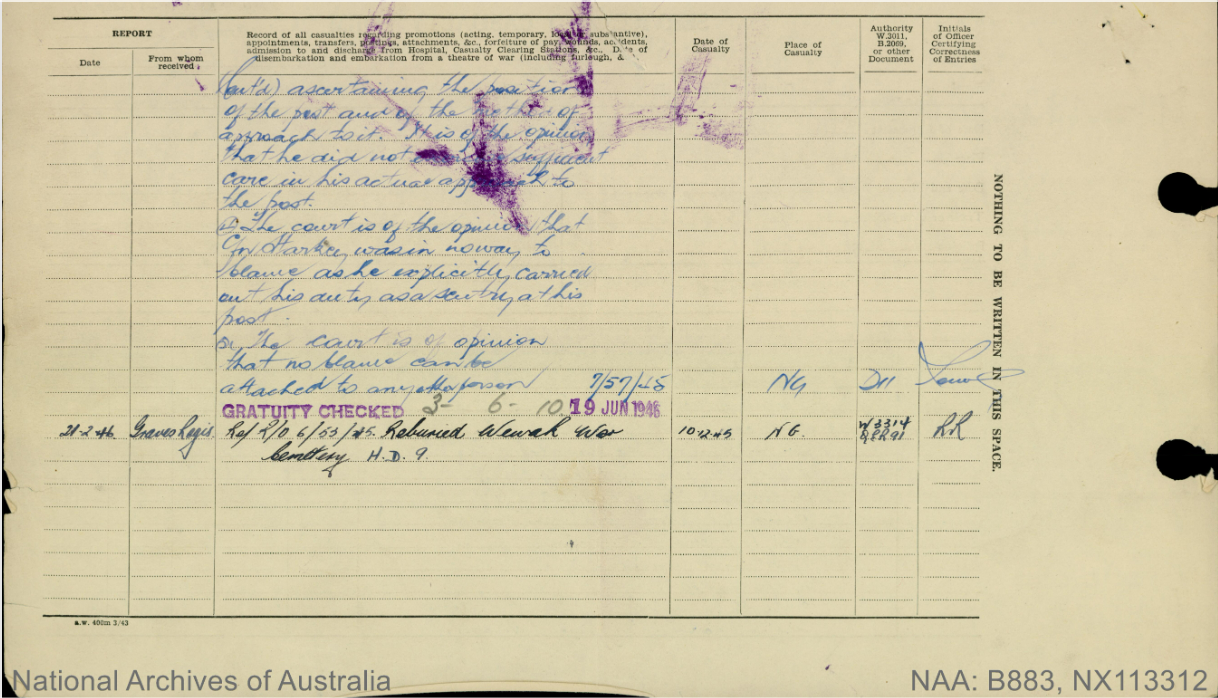 REPORT
Date
From whom received
Record of all casualties regarding promotions (acting, temporary, local or substantive),
appointments, transfers, postings, attachments, &c., forfeiture of pay, wounds, accidents,
admission to and discharge from Hospital, Casualty Clearing Stations, &c. Date of
disembarkation and embarkation from a theatre of war (including furlough, &
Date of
Casualty
Place of
Casualty
Authority
W.3011,
B.2069,
or other
Document
Initials
of Officer
Certifying
Correctness
of Entries
(cont'd) ascertaining the position
of the post and of the method of
approach to it. It is of the opinion
that he did not sufficient
care in his actual approach to
the post.
The court is of the opinion that
Starkey was in no way to
blame as he explicitly carried
out his duty as a sentry at his
post.
The court is of opinion
that no blame can be
attached to any other person 7/57/45 NG
GRATUITY CHECKED 3- 6- 10 19 JUN 1946
21-2-46 Graves Regis Ref R/O 6/53/45. Reburied Wewak War 10-12-45 NG. W3314
Cemetery H.D. 9.
NOTHING TO BE WRITTEN IN THIS SPACE.
a.w. 400m 3/43
National Archives of Australia
NAA: B883, NX113312